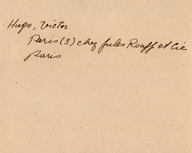 Hugo, Victor
Paris (3) chez Jules Rouff et Cie
Paris